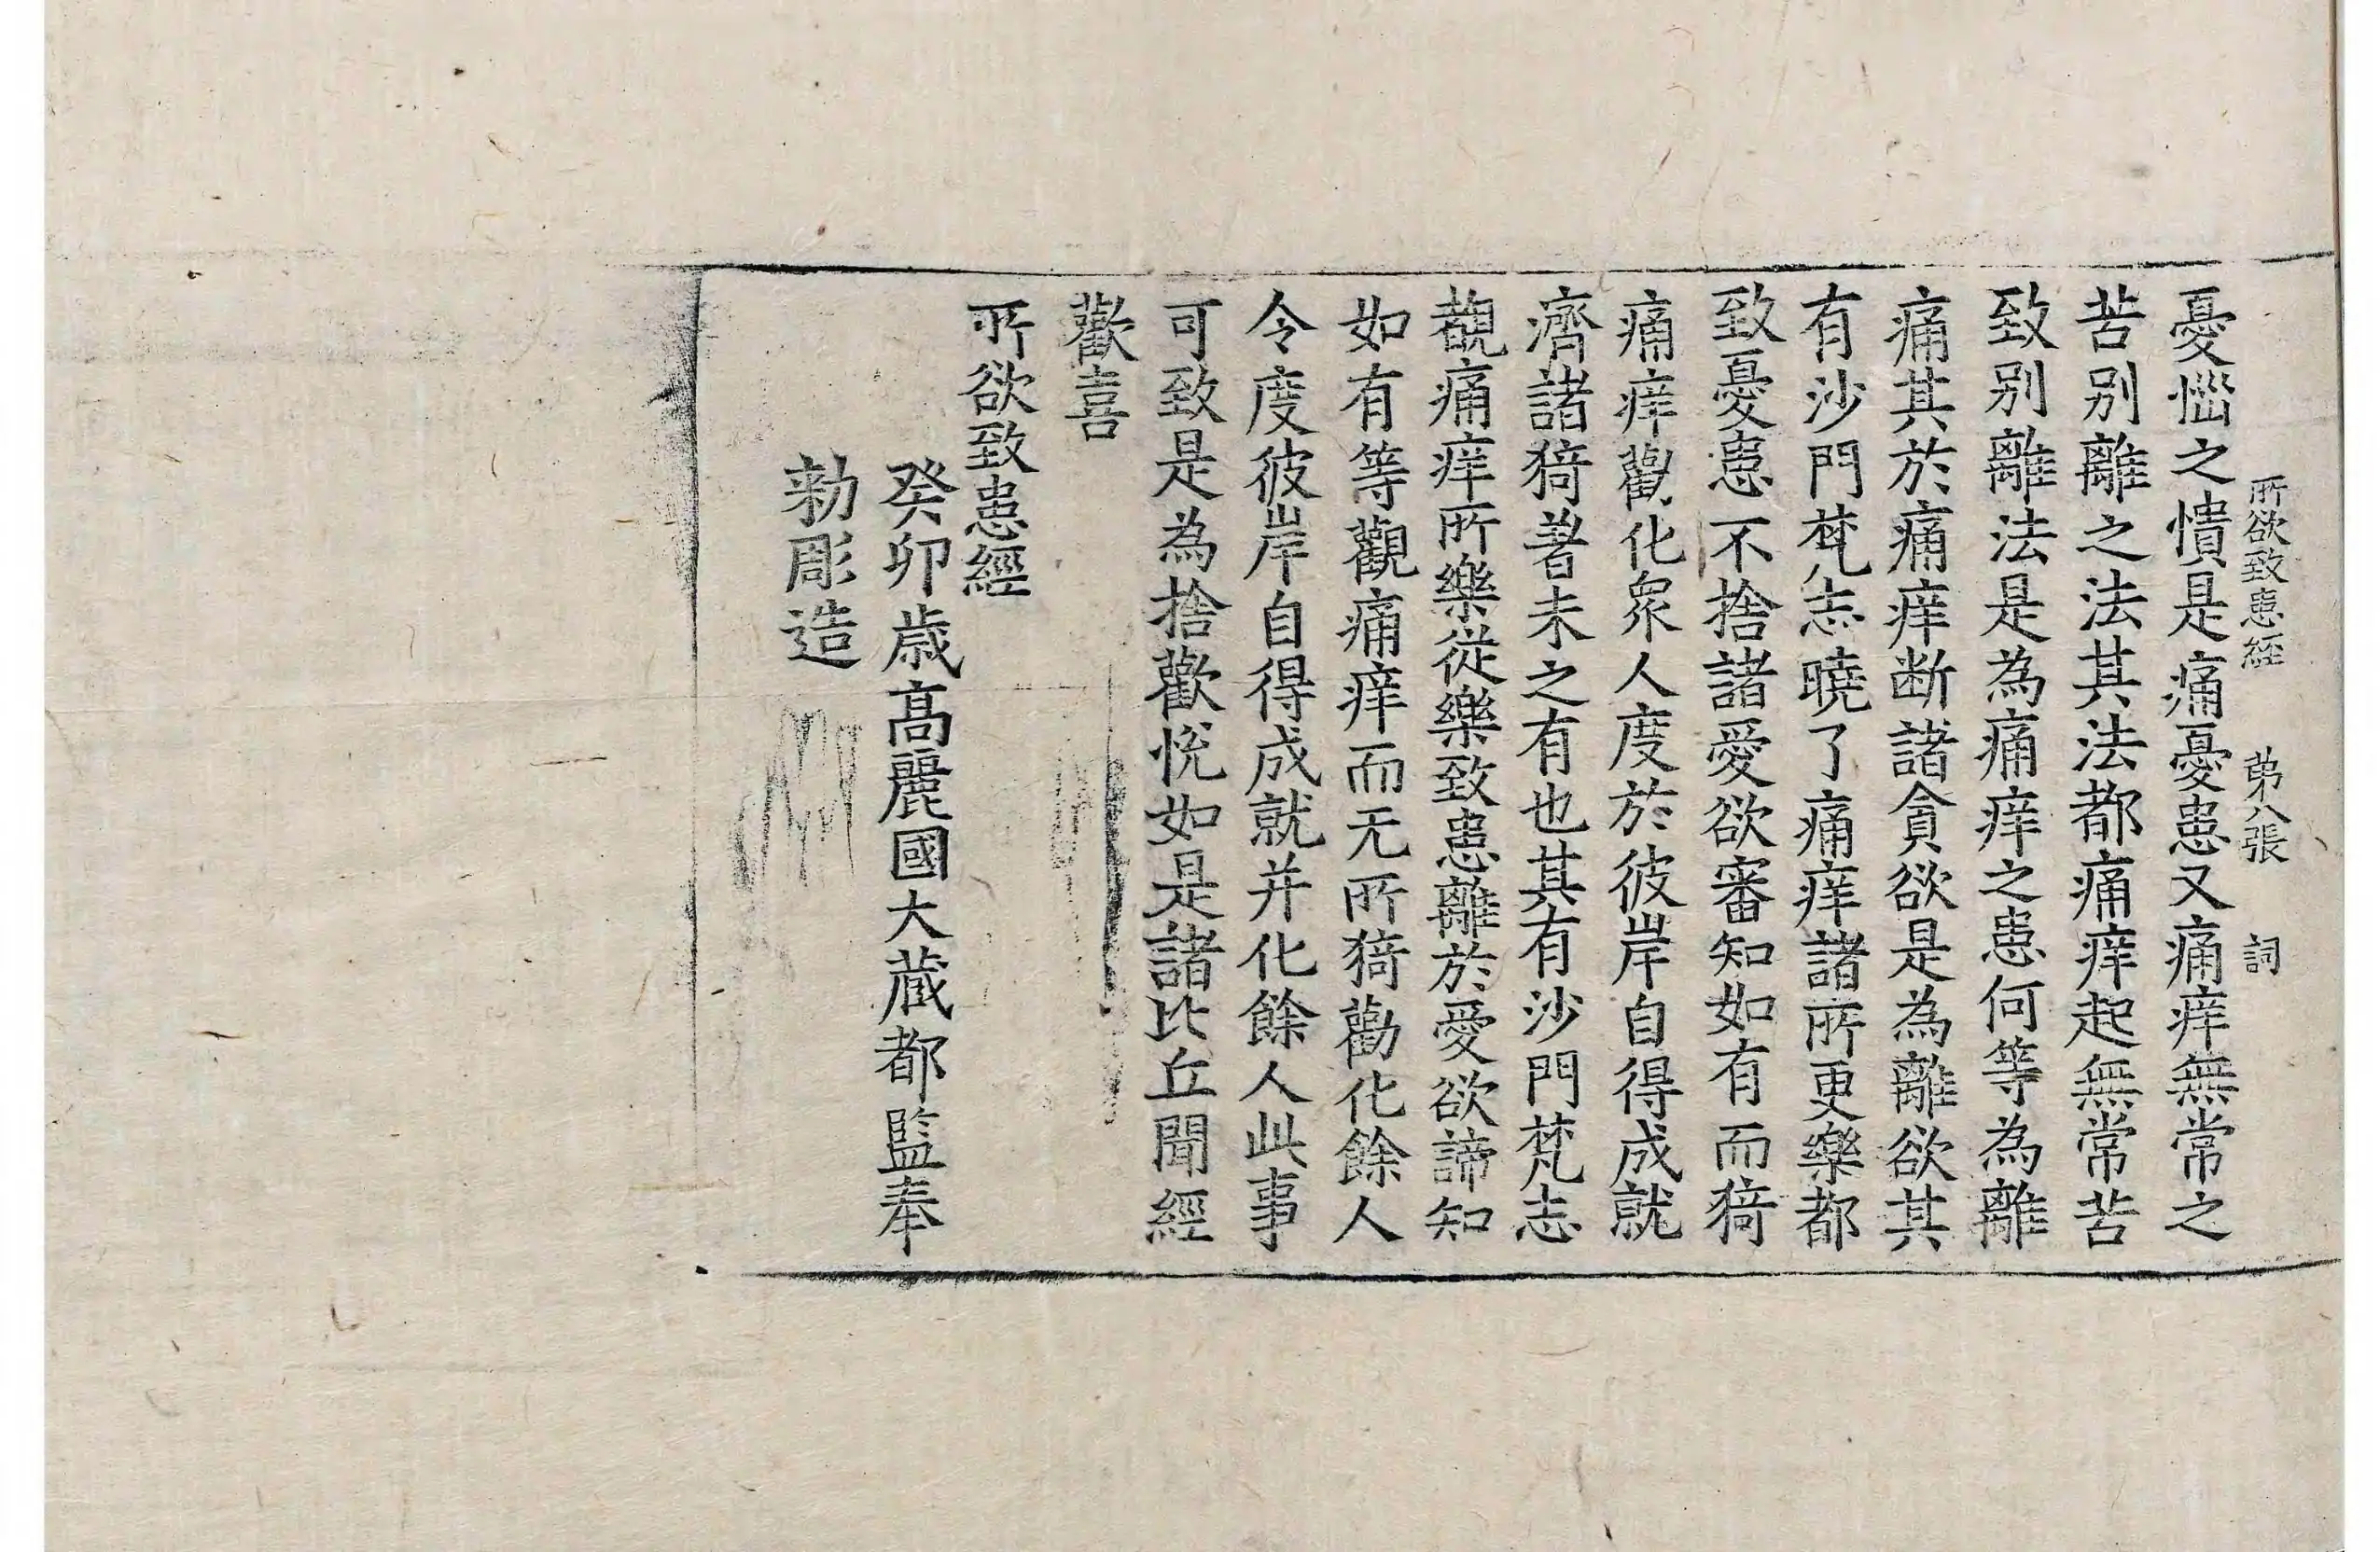 所欲致患經 第八張 詞
憂惱之憒是痛憂患又痛痒無常之
苦別離之法其法都痛痒起無常苦
致別離法是為痛痒之患何等為離
痛其於痛痒断諸貪欲是為離欲其
有沙門梵志曉了痛痒諸所更樂都
致憂患不捨諸愛欲審知如有而猗
痛痒勸化衆人度於彼岸自得成就
濟諸猗著未之有也其有沙門梵志
觀痛痒所樂從樂致患離於愛欲諦知
如有等觀痛痒而无所猗勸化餘人
令度彼岸自得成就并化餘人此事
可致是為捨歡悅如是諸比丘聞經
歡喜
所欲致患經
癸卯歲高麗國大藏都監奉
勑彫造